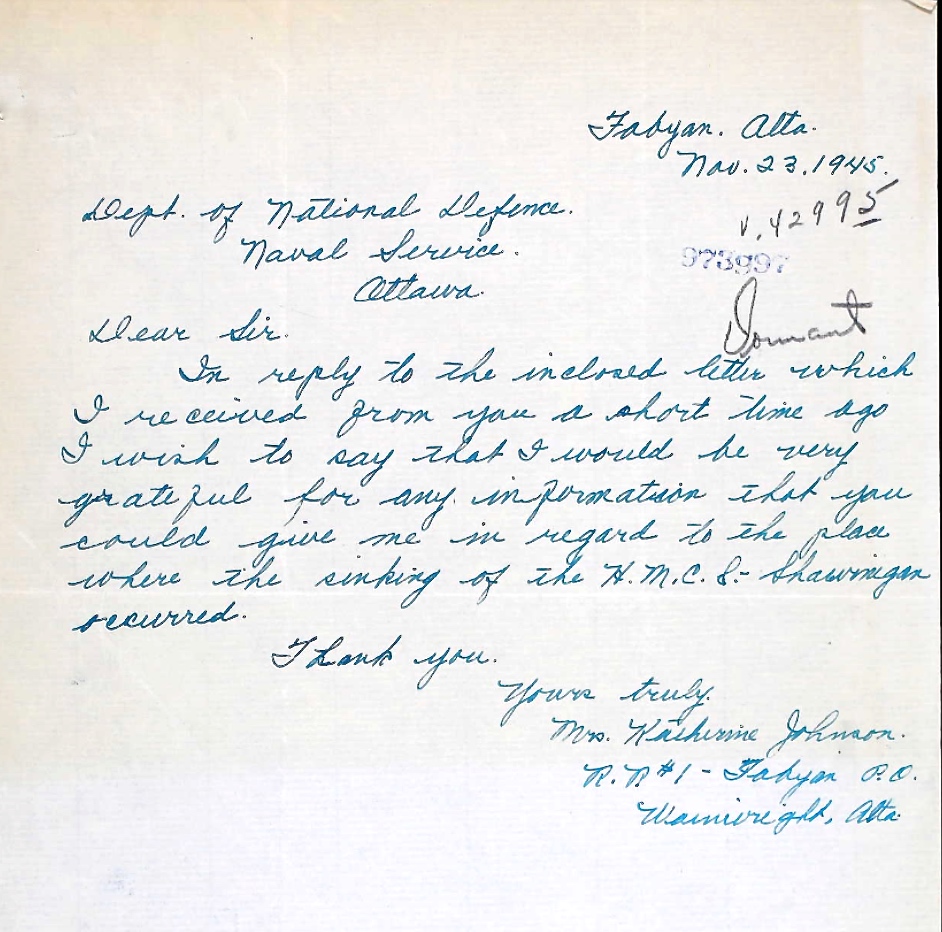 Fabyan. Alta.
Nov. 23. 1945.
Dept. of National Defence.
v. 42995
Naval Service.
973997
Ottawa.
Dormant
Dear Sir.
In reply to the inclosed letter which
I received from you a short time ago
I wish to say that I would be very
grateful for any information that you
could give me in regard to the place
where the sinking of the H.M.C.S.- Shawinigan
occurred.
Thank you.
Yours truly.
Mrs. Katherine Johnson.
R.R #1 - Fabyan P.O.
Wainwright, Alta.